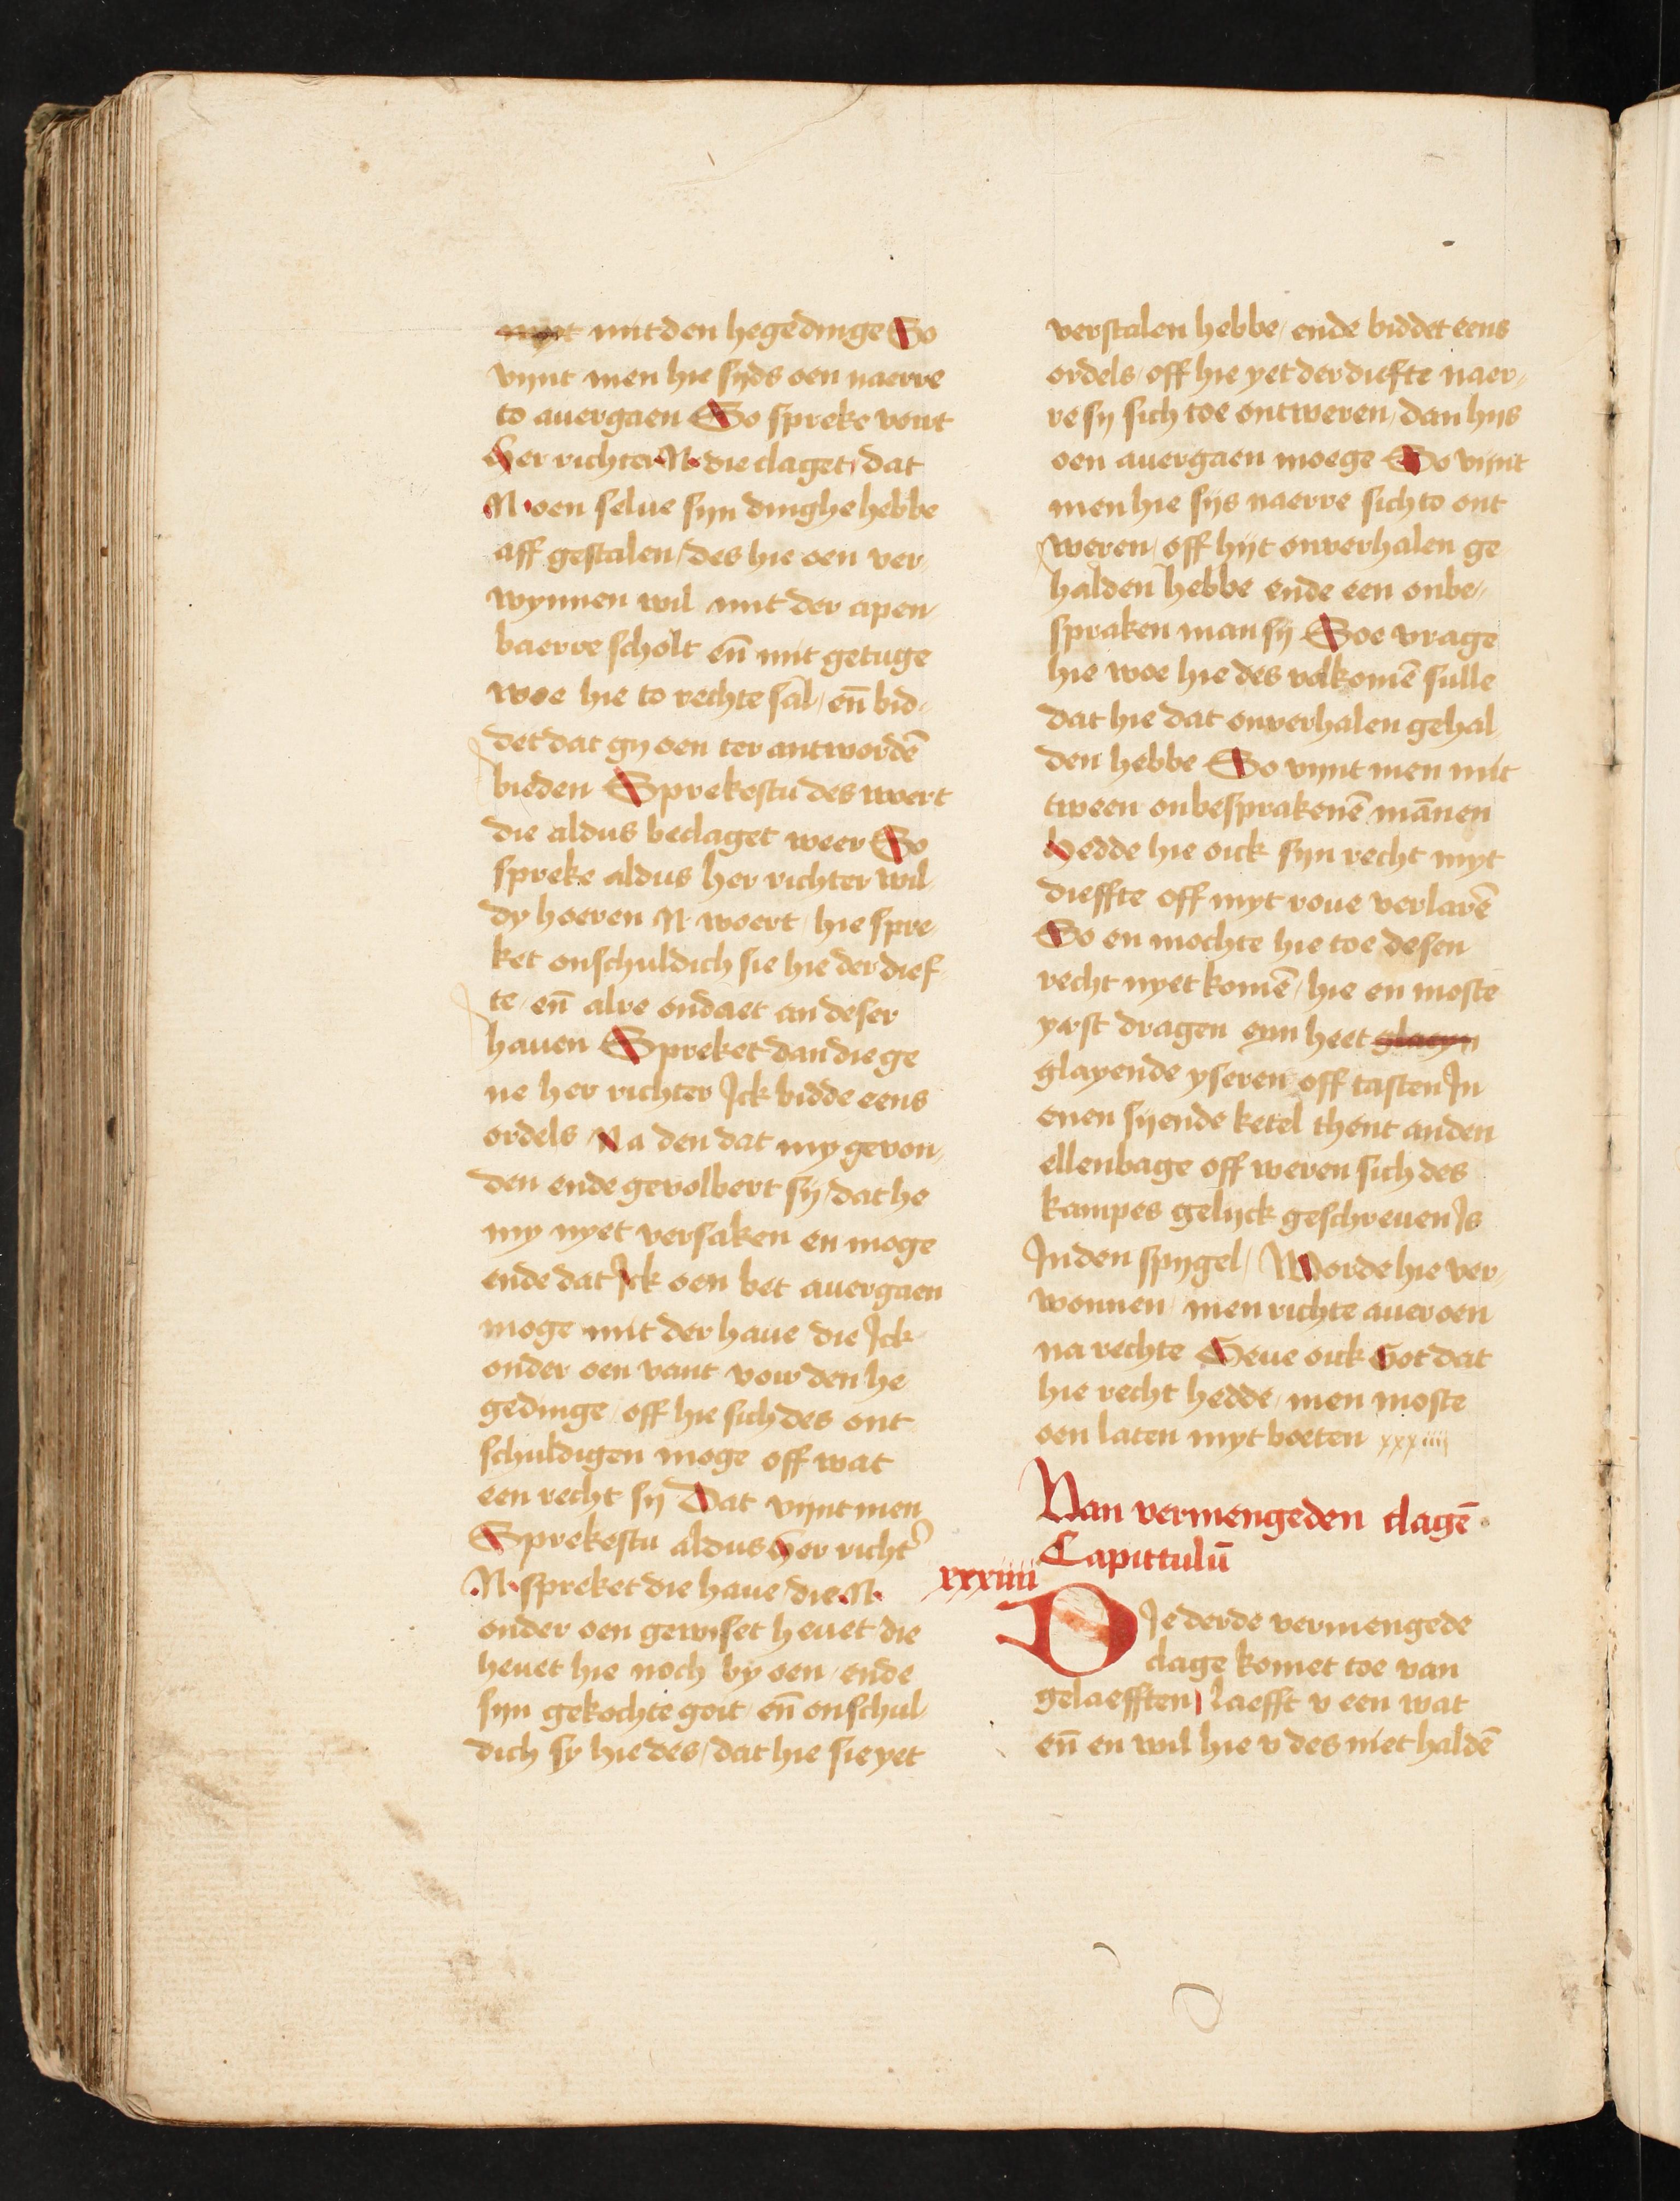 mit den hegedinge So
vijnt men hie sijds oen naerre
to auergaen So spreke vort
Her richter N die claget dat
N oen selue sijn dinghe hebbe
aff gestalen / des hie oen ver-
wynnen wil mit der apen-
baerre scholt eñ mit getuge
woe hie to rechte sal / eñ bid-
det dat gy oen ter antwordē
bieden Sprekestu des wert
die aldus beclaget weer So
spreke aldus her richter wil-
dy hoeren N woert / hie spre-
ket onschuldich sie hie der dief-
te / eñ alre ondaet an deser
hauen Spreket dan die ge
ne her richter Jck bidde eens
ordels / Na den dat my gevon-
den ende gevolbert sy / dat he
my nyet versaken en moge
ende dat Jck oen bet auergaen
moge mit der haue die Jck
onder oen vant vour den he
gedinge / off hie sich des ont
schuldigen moge off wat
een recht sy Dat vijnt men
Sprekestu aldus Her richt'
.N. spreket die haue die .N.
onder oen gewiset heuet die
heuet hie noch by oen / ende
sijn gekochte goit / eñ onschul-
dich sy hie des / dat hie sie yet
verstalen hebbe / ende biddet eens
ordels / off hie yet der diefte naer-
re sy sich toe ontweren / dan hijs
oen auergaen moege So vijnt
men hie sijs naerre sich to ont
weren / off hijt onverhalen ge
halden hebbe ende een onbe-
spraken man sij Soe vrage
hie woe hie des volkomē sulle
dat hie dat onverhalen gehal
den hebbe So vijnt men mit
tween onbesprakenē mānen
Hedde hie oick sijn recht myt
dieffte off myt roue verlarē
So en mochte hie toe desen
recht nyet komē / hie en moste
yrst dragen eyn heet
glayende yseren off tasten Jn
enen sijende ketel thent anden
ellenbage off weren sich des
kampes gelijck geschreuen Js
Jnden spygel / Worde hie ver-
wonnen / men richte auer oen
na rechte Geue oick Got dat
hie recht hedde / men moste
oen laten myt boeten xxxiiii
Van vermengeden clagē
Capittulū
xxxiiii
DJe derde vermengede
clage komet toe van
gelaefften / laefft v een wat
eñ en wil hie v des niet haldē